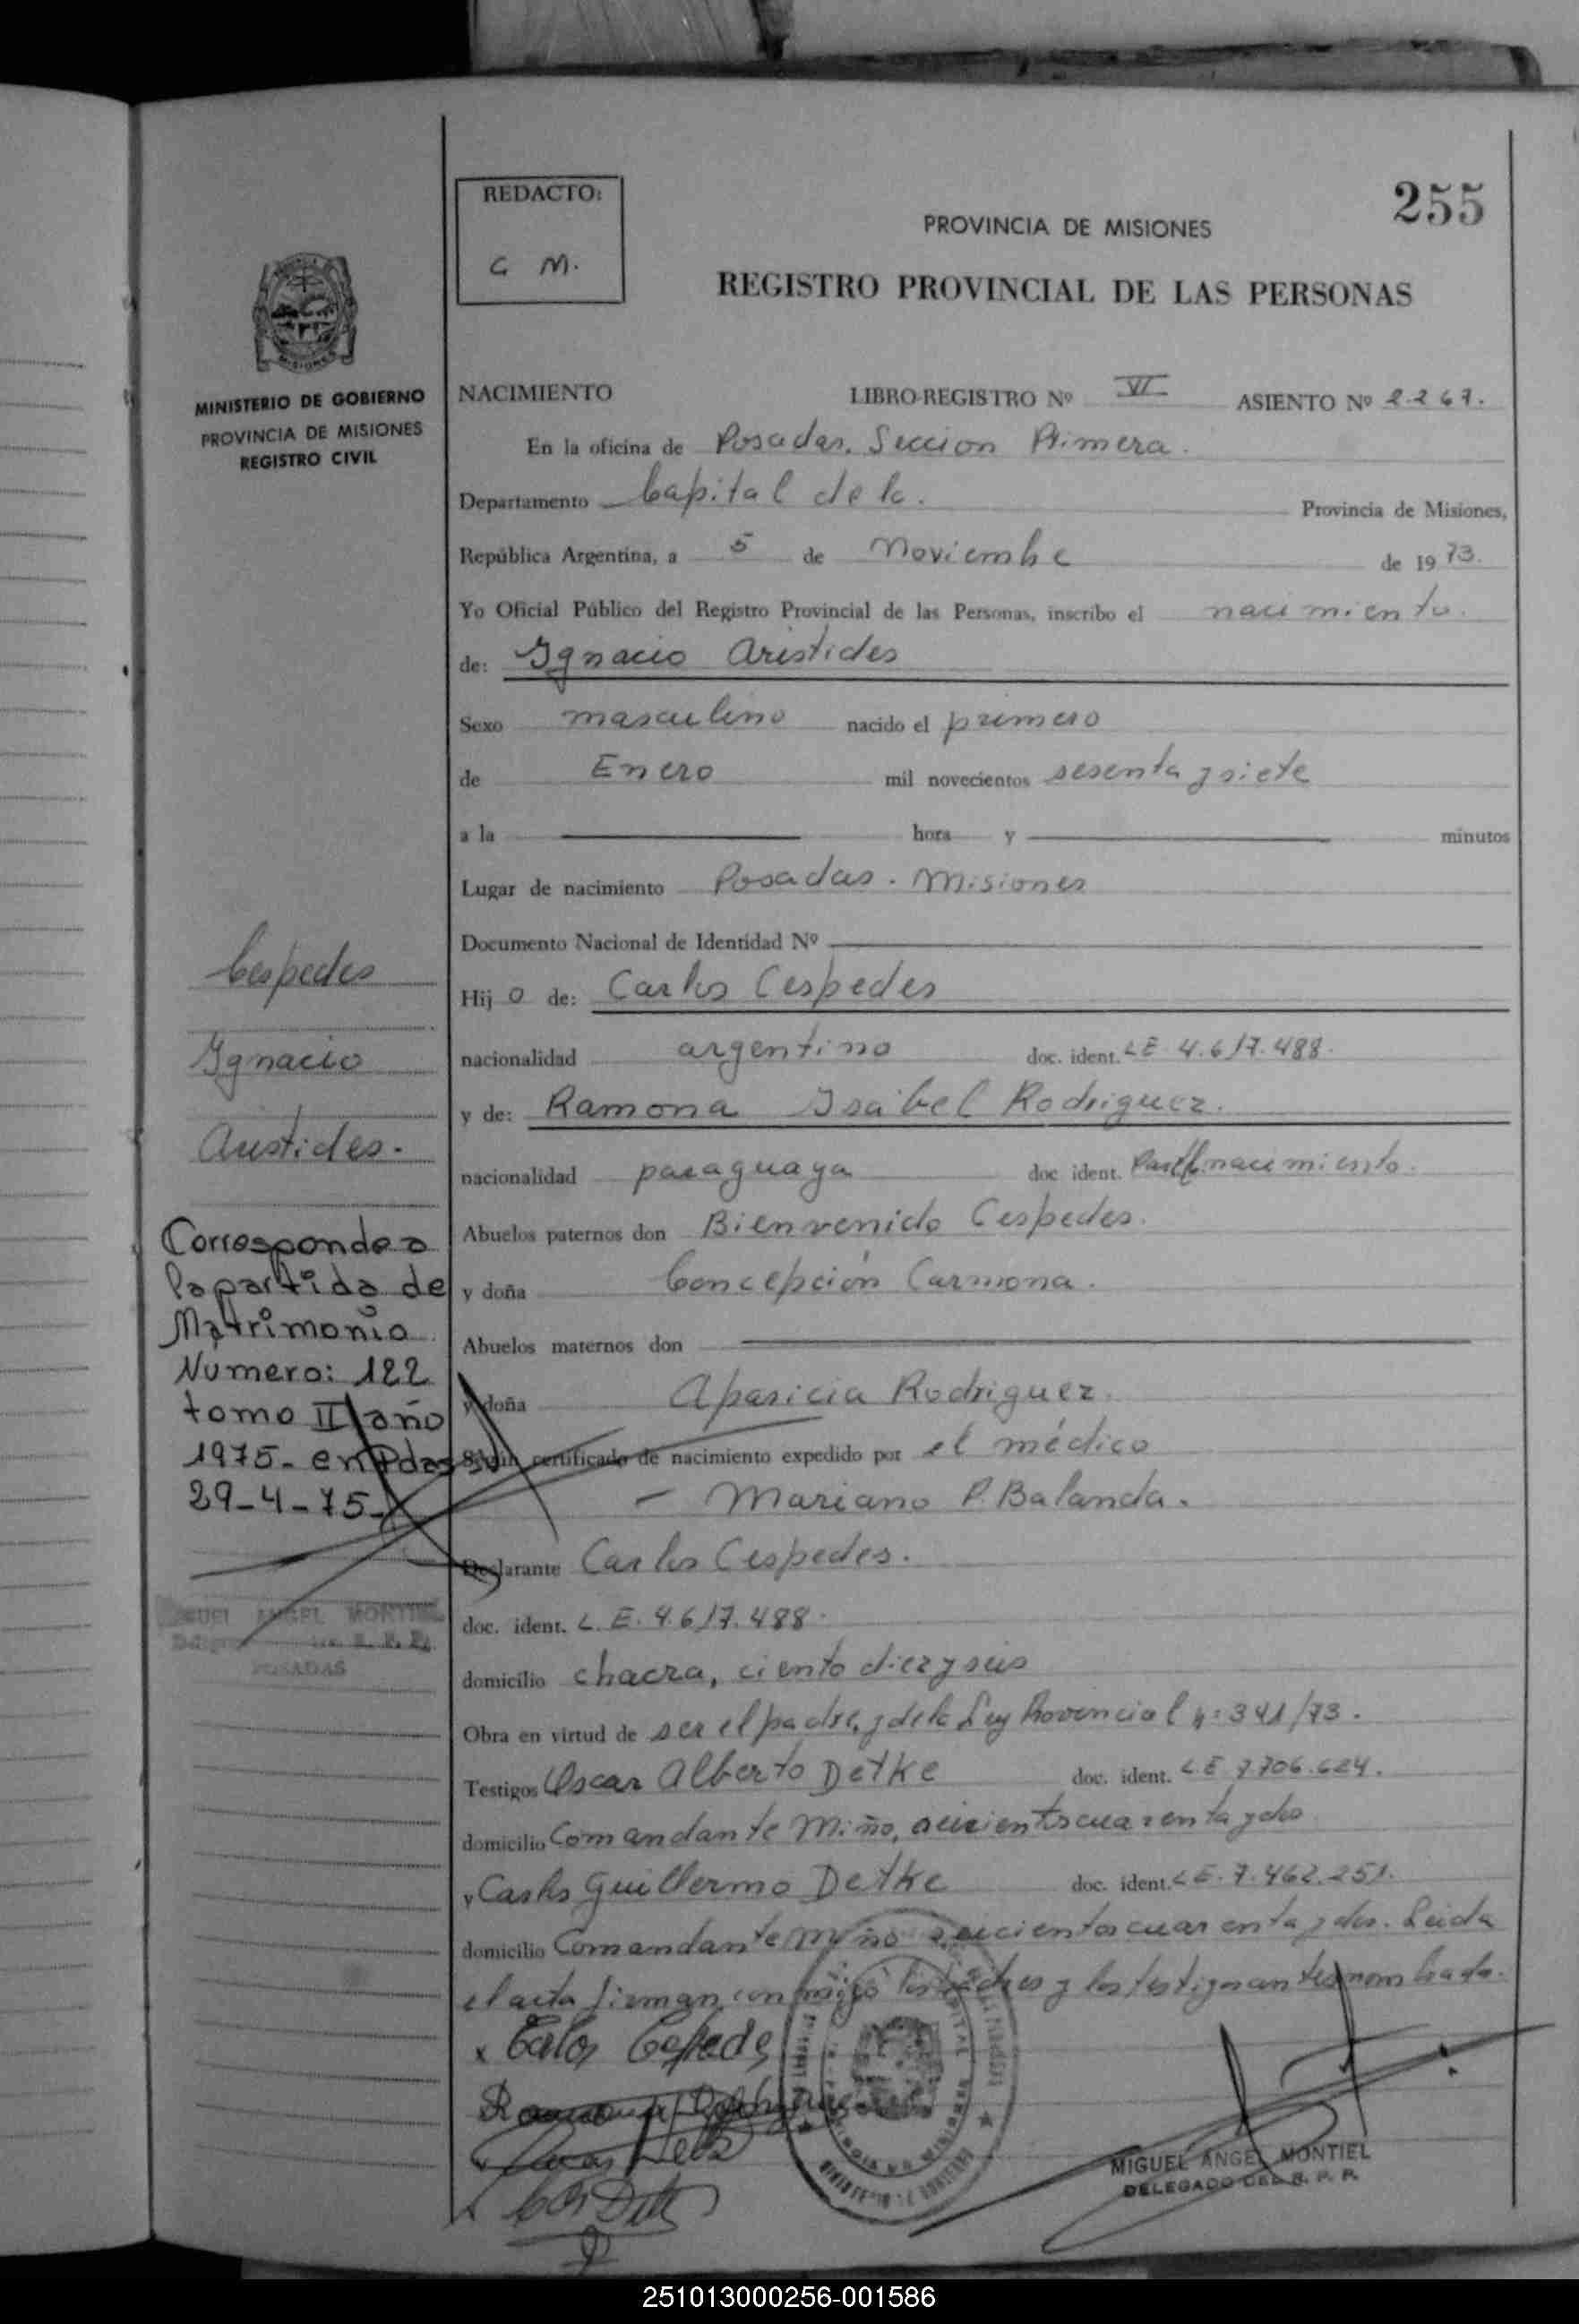 255
REDACTO:
G M.
PROVINCIA DE MISIONES
REGISTRO PROVINCIAL DE LAS PERSONAS
MINISTERIO DE GOBIERNO
PROVINCIA DE MISIONES
REGISTRO CIVIL
NACIMIENTO LIBRO-REGISTRO Nº VI ASIENTO Nº 2267.
En la oficina de Posadas. Seccion Primera.
Departamento Capital de la. Provincia de Misiones,
República Argentina, a 5 de Noviembre de 1973.
Yo Oficial Público del Registro Provincial de las Personas, inscribo el nacimiento.
de: Ignacio Aristides
Sexo masculino nacido el primero
de Enero mil novecientos sesenta y siete
a la hora y minutos
Lugar de nacimiento Posadas. Misiones
Documento Nacional de Identidad Nº
Hijo de: Carlos Cespedes
nacionalidad argentino doc. ident. LE 4.617.488.
y de: Ramona Isabel Rodriguez.
nacionalidad paraguaya doc ident. nacimiento.
Abuelos paternos don Bienvenido Cespedes.
y doña Concepción Carmona.
Abuelos maternos don
y doña Aparicia Rodriguez.
Según certificado de nacimiento expedido por el médico
Mariano P. Balanda.
Declarante Carlos Cespedes.
doc. ident. L.E. 4.617.488.
domicilio chacra, ciento diez y seis
Obra en virtud de ser el padre, y de la Ley Provincial nº 341/73.
Testigos Oscar Alberto Detke doc. ident. LE 7.706.624.
domicilio Comandante Miño, seiscientos cuarenta y dos
y Carlos Guillermo Detke doc. ident. LE. 7.462.251.
domicilio Comandante Miño seiscientos cuarenta y dos. Leida
el acta firman conmigo los padres y los testigos antes nombrados.
x Carlos Cespedes
MIGUEL ANGEL MONTIEL
DELEGADO DEL R. P. P.
Cespedes
Ignacio
Aristides.
Corresponde a
la partida de
Matrimonio
Numero: 122
tomo II año
1975- en Pdas
29-4-75-
MIGUEL ANGEL MONTIEL
R. P. P.
POSADAS
251013000256-001586